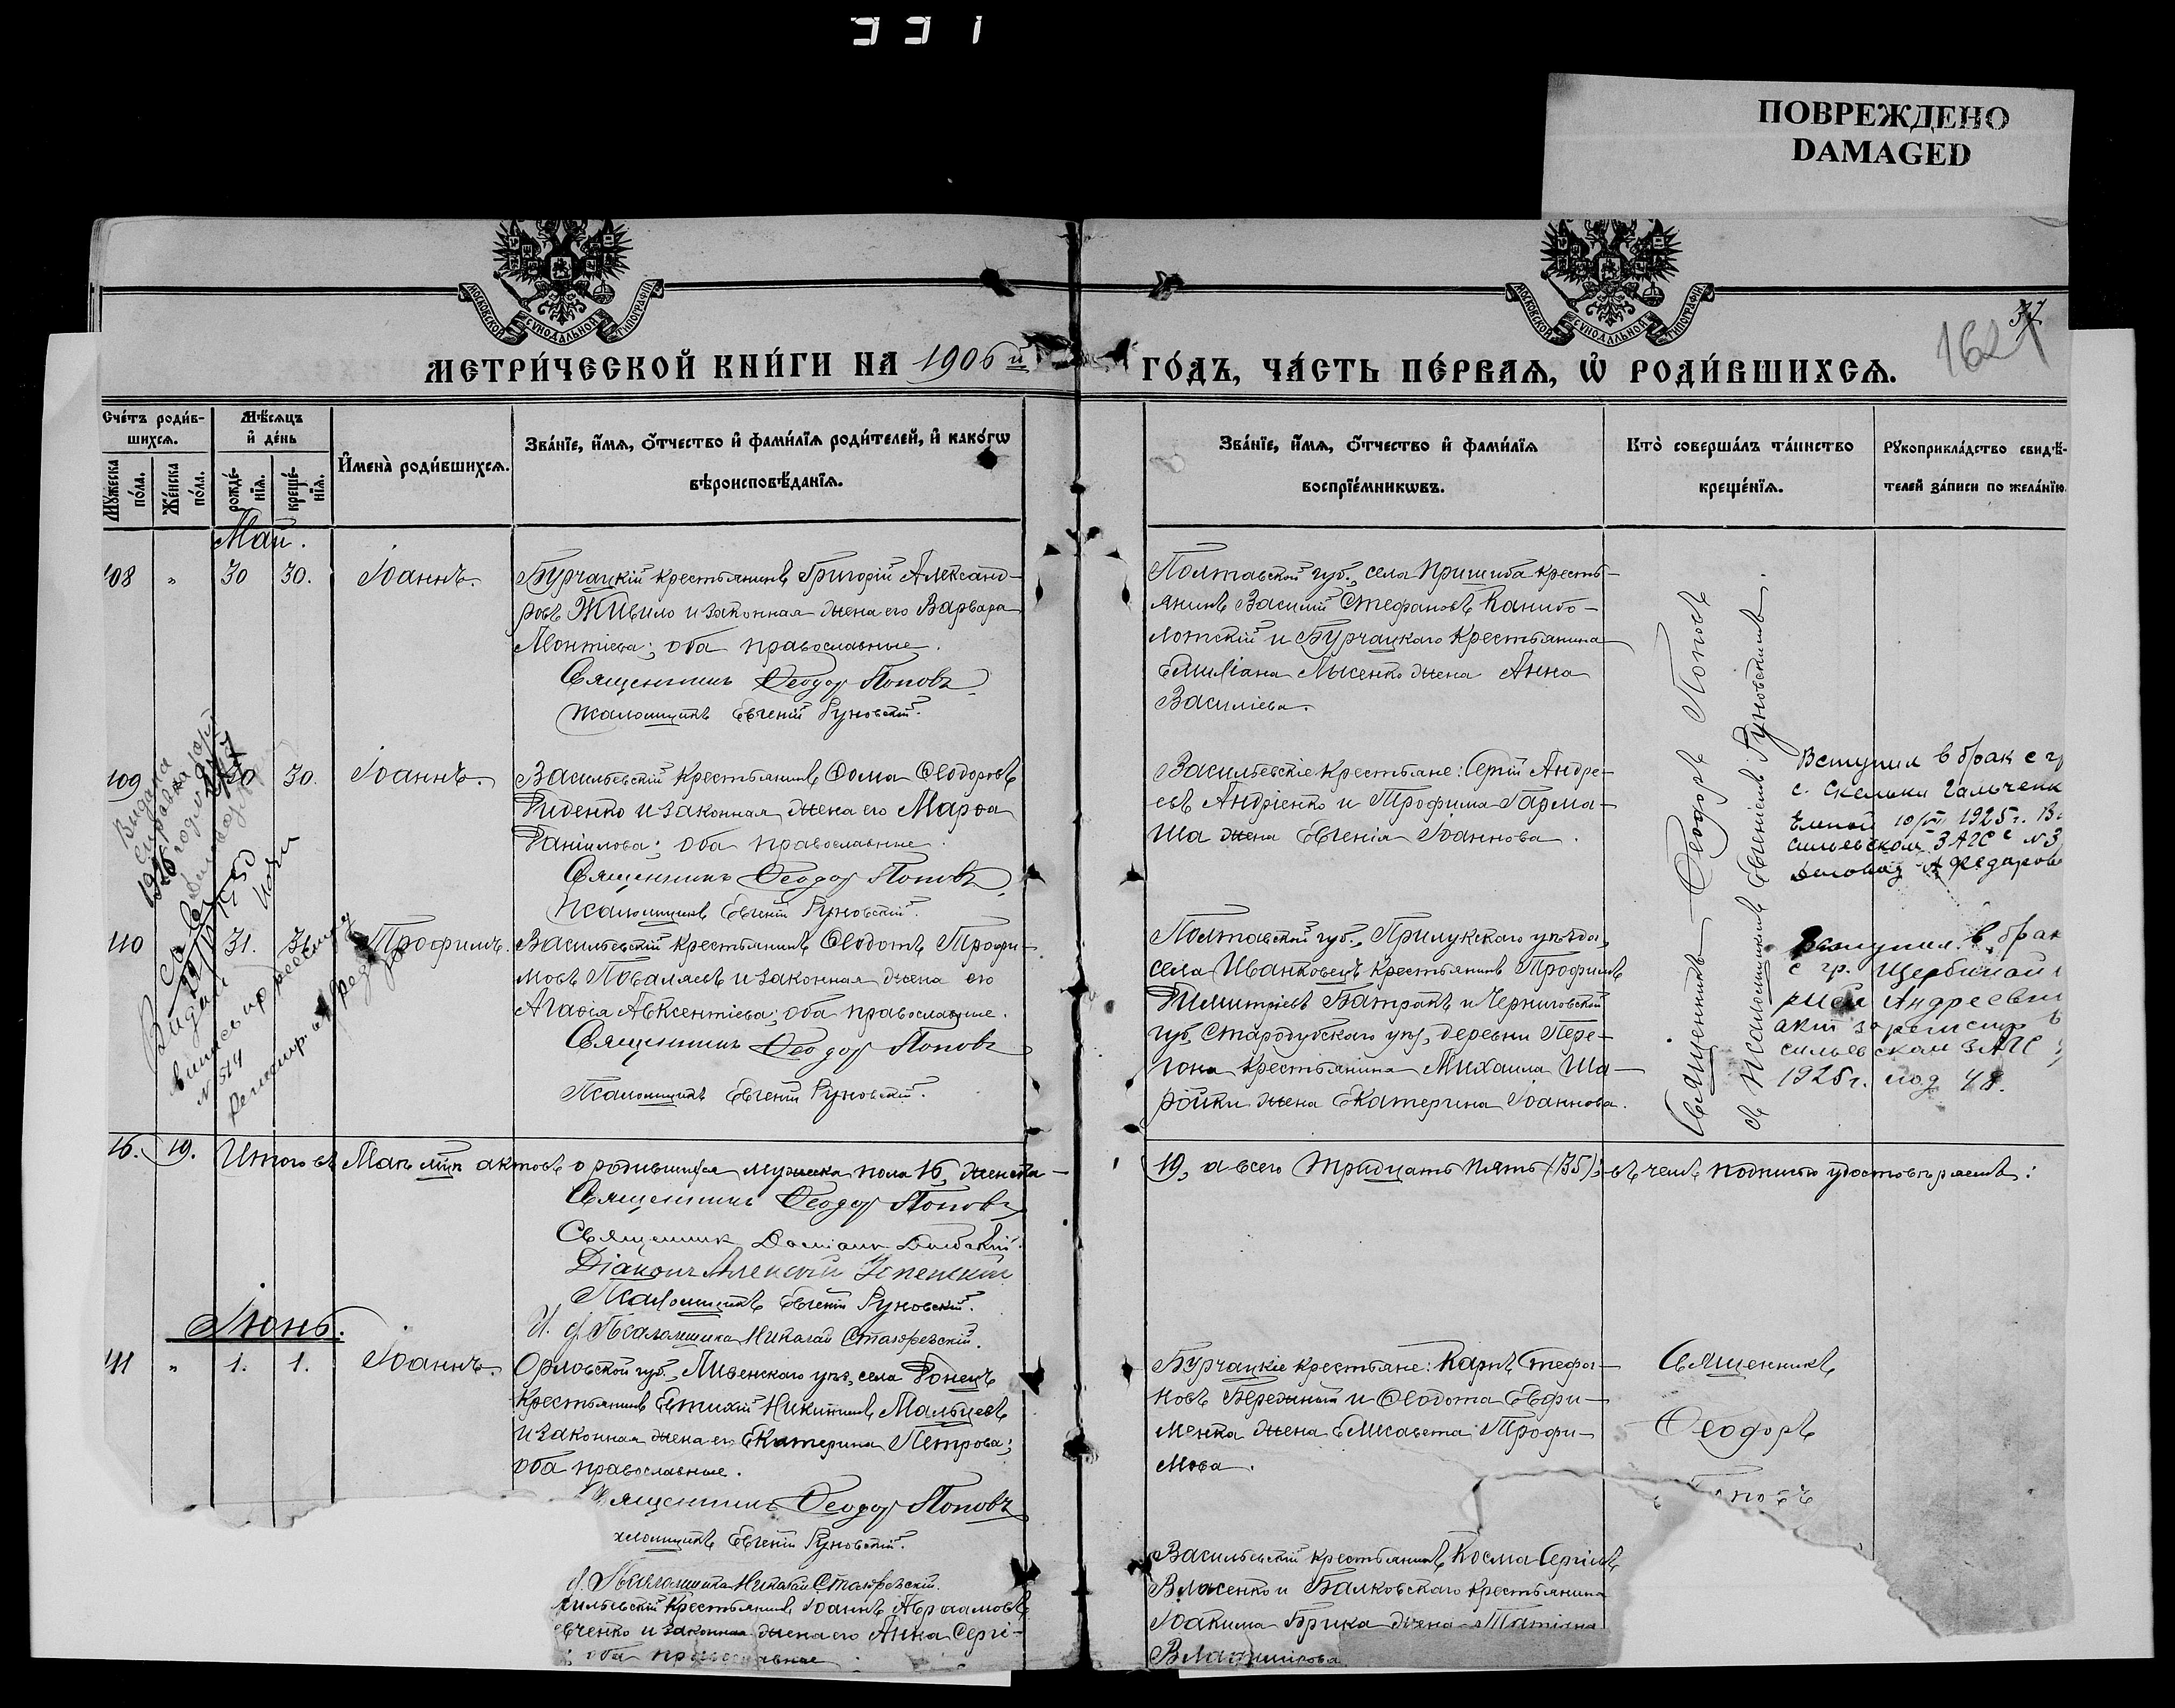 331
ПОВРЕЖДЕНО
DAMAGED
МОСКОВСКОЙ СУНОДАЛЬНОЙ ТИПОГРАФІИ
МОСКОВСКОЙ СУНОДАЛЬНОЙ ТИПОГРАФІИ
37
162
МЕТРИ́ЧЕСКОЙ КНИ́ГИ НА 1906 й
ГО́ДЪ, ЧА́СТЬ ПЕ́РВАЯ, Ѡ РОДИ́ВШИХСЯ.
Сче́тъ роди́вшихся.
Мѣ́сяцъ и де́нь
Мꙋ́жеска по́ла.
Же́нска по́ла.
рожде́нїя.
креще́нїя.
И҆мена̀ роди́вшихся.
Зва́нїе, и҆́мя, ѻ҆́тчество и҆ фами́лїя роди́телей, и҆ како́гѡ
вѣроисповѣ́данїя.
Зва́нїе, и҆́мя, ѻ҆́тчество и҆ фами́лїя
воспрїе́мникѡвъ.
Кто̀ соверша́лъ та́инство
креще́нїя.
Рꙋкоприкла́дство свидѣ́-
телей за́писи по жела́нїю.
Май.
108 " 30 30. Іоаннъ.
Бурчацкій крестьянинъ Григорій Александ-
ровъ Живило и законная жена его Варвара
Леонтіева; оба православные.
Священникъ Ѳеодоръ Поповъ
Псаломщикъ Евгеній Руновскій.
Полтавской губ., села Пришиба кресть-
янинъ Василій Стефановъ Канибо-
лотскій и Бурчацкаго крестьянина
Емиліана Лысенко жена Анна
Василіева.
109 30 30. Іоаннъ.
Васильевскій крестьянинъ Ѳома Ѳеодоровъ
Диденко и законная жена его Марѳа
Даніилова; оба православные.
Священникъ Ѳеодоръ Поповъ
Псаломщикъ Евгеній Руновскій.
Васильевскіе крестьяне: Сергій Андре-
евъ Андріенко и Трофима Гарма-
ша жена Евгенія Іоаннова.
Вступил в брак с гр
с. Скельки Гальченк
10/ 1925 г. Ва
сильевском ЗАГС №3
110 31. 31 Трофимъ.
Васильевскій крестьянинъ Ѳеодотъ Трофи-
мовъ Поваляевъ и законная жена его
Агаѳія Авксентіева; оба православные.
Священникъ Ѳеодоръ Поповъ
Псаломщикъ Евгеній Руновскій.
Полтавской губ., Прилукскаго уѣзда,
села Иванковецъ крестьянинъ Трофимъ
Димитріевъ Батракъ и Черниговской
губ., Стародубскаго уѣз., деревни Пере-
гона крестьянина Михаила Ша-
ройки жена Екатерина Іоаннова.
Священникъ Ѳеодоръ Поповъ
съ Псаломщикомъ Евгеніемъ Руновскимъ.
Вступил в брак
с гр. Щербиной
рией Андреевн
акт зарегистр в
сильевском ЗАГС
1925 г. под 48.
16. 19. Итого въ Маѣ мцѣ актовъ о родившихся мужеска пола 16, женска —
19, а всего тридцать пять (35); въ чемъ подписью удостовѣряемъ:
Священникъ Ѳеодоръ Поповъ
Священник Даміанъ
Діаконъ Алексій Успенскій
Псаломщикъ Евгеній Руновскій.
И. д. Псаломщика Николай
Іюнь.
111 " 1. 1. Іоаннъ.
Орловской губ., Ливенскаго уѣз., села Донецъ
крестьянинъ Евтихій Никитинъ Мальцевъ
и законная жена его Екатерина Петрова;
оба православные.
вященникъ Ѳеодоръ Поповъ
аломщикъ Евгеній Руновскій.
д. Псаломщика Николай
Бурчацкіе крестьяне: Карпъ Стефа-
новъ Бережный и Ѳеодота Евфи-
менка жена Елисавета Трофи-
мова.
Священникъ
Ѳеодоръ
Поповъ
сильевскій крестьянинъ Іоаннъ Авраамовъ
вченко и законная жена его Анна Серги-
; оба православные
Васильевскій крестьянинъ Косма Сергіевъ
Власенко и Балковскаго крестьянина
Іоакима Брика жена Татіана
Владимірова